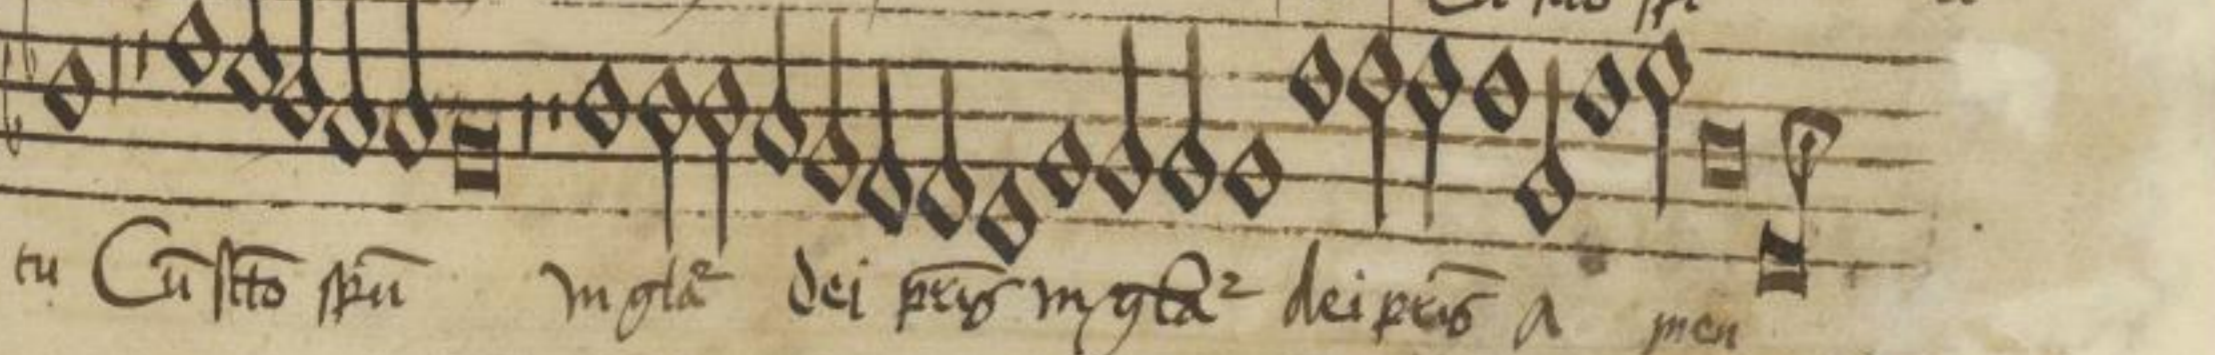 tu Cū sc̄to spū in gl̄a² dei pr̄is in gl̄a² dei pr̄is a men